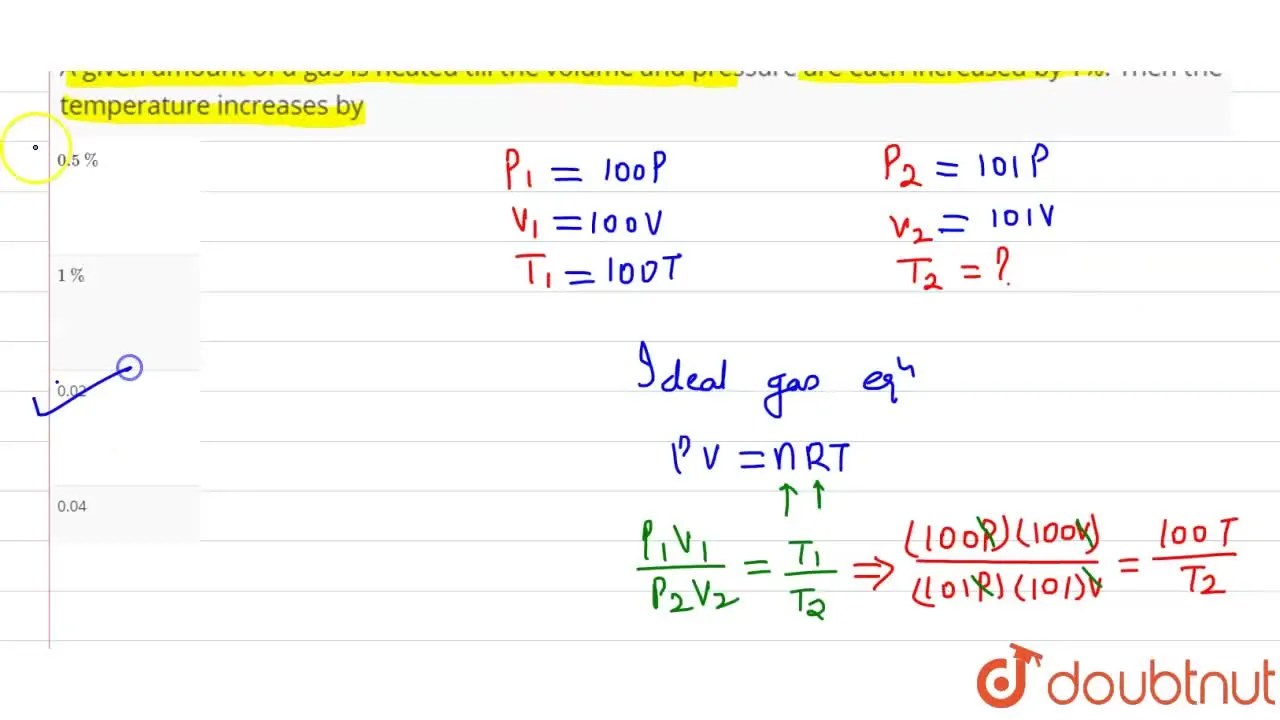 A given amount of a gas is heated till the volume and pressure are each increased by 1%. Then the
temperature increases by
0.5 %
1 %
0.02
0.04
P1 = 100P
V1 = 100V
T1 = 100T
P2 = 101P
V2 = 101V
T2 = ?
Ideal gas eqn
PV = nRT
↑ ↑
P1V1/P2V2 = T1/T2 ⇒ (100P)(100V)/(101P)(101)V = 100T/T2
doubtnut